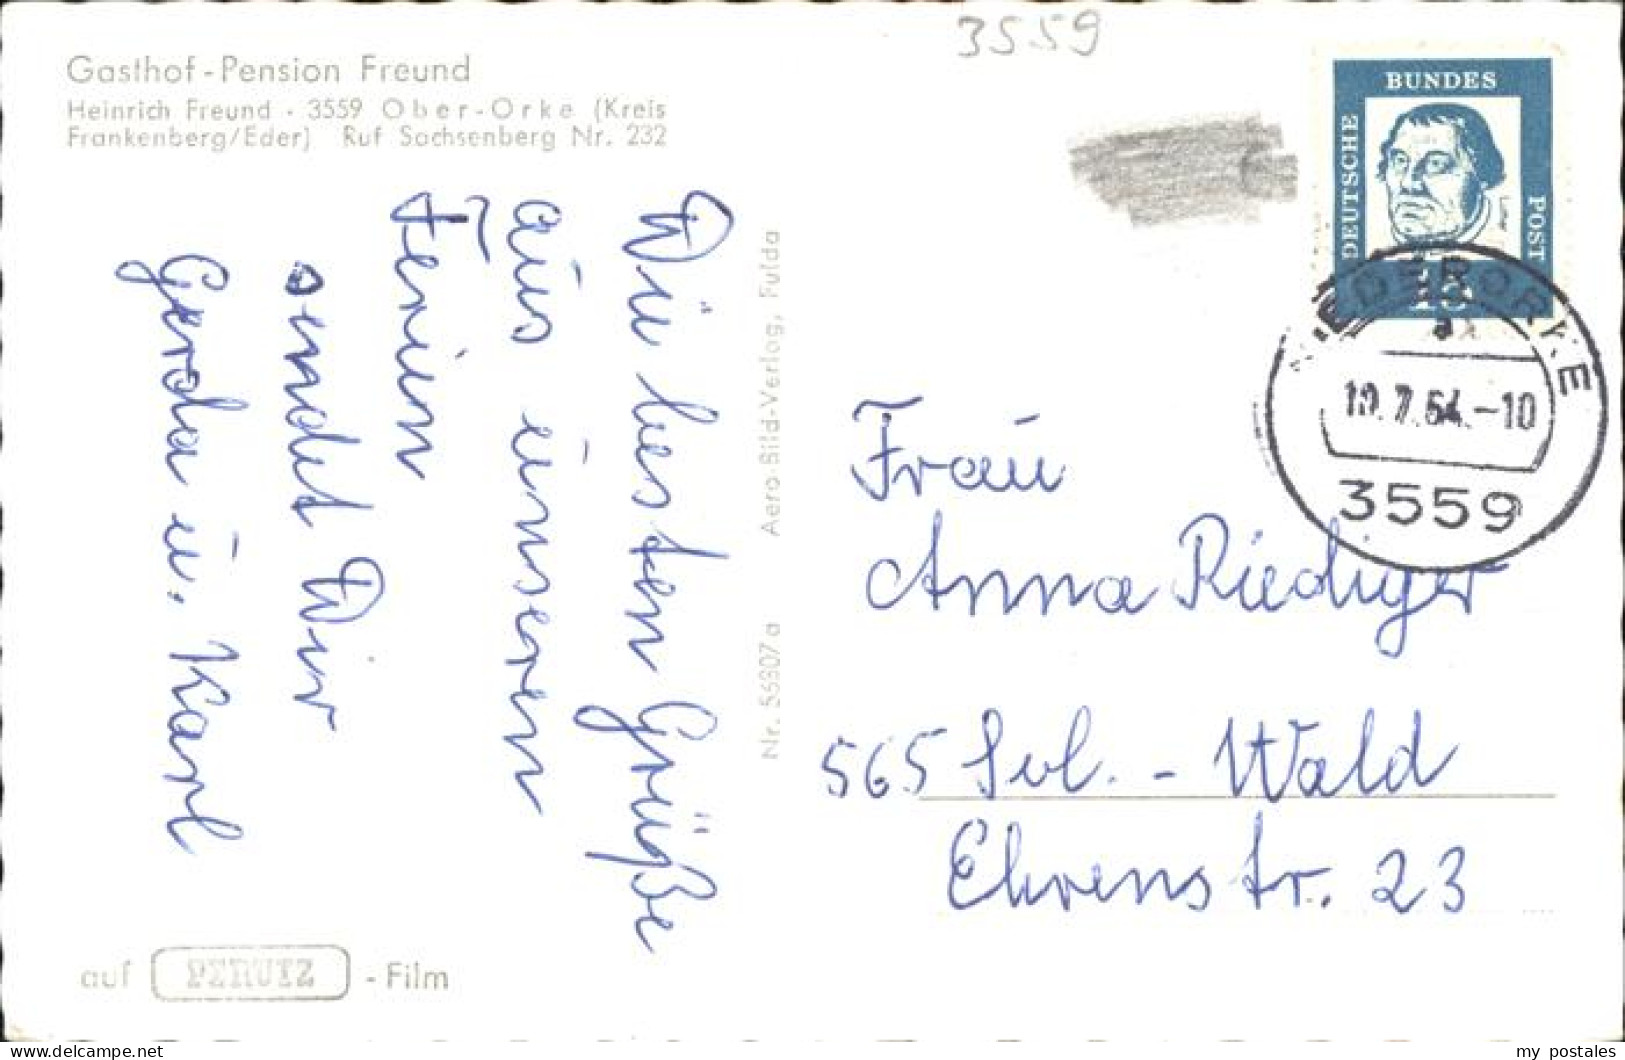 3559
Gasthof-Pension Freund
Heinrich Freund - 3559 Ober-Orke (Kreis
Frankenberg/Eder) Ruf Sachsenberg Nr. 232
Die besten Grüße
aus unseren
Ferien
sendet Wir
Gerda u. Karl
auf PERUTZ - Film
Nr. 55307a Aero-Bild-Verlag, Fulda
DEUTSCHE
BUNDES
POST
Luther
15
NIEDERORKE
a
10.7.64.-10
3559
Frau
Anna Riediger
565 Sol. - Wald
Ehrenstr. 23
my_postales